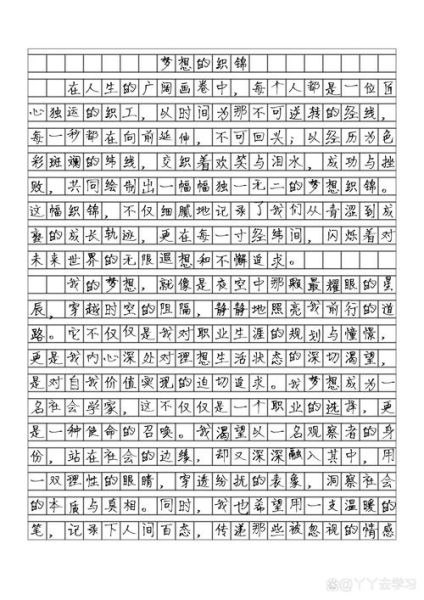 梦想的织锦
在人生的广阔画卷中，每个人都是一位匠
心独运的织工，以时间为那不可逆转的经线，
每一秒都在向前延伸，不可回头；以经历为色
彩斑斓的纬线，交织着欢笑与泪水，成功与挫
败，共同绘制出一幅幅独一无二的梦想织锦。
这幅织锦，不仅细腻地记录了我们从青涩到成
熟的成长轨迹，更在每一寸经纬间，闪烁着对
未来世界的无限遐想和不懈追求。
我的梦想，就像是夜空中那颗最耀眼的星
辰，穿越时空的阻隔，静静地照亮我前行的道
路。它不仅仅是我对职业生涯的规划与憧憬，
更是我内心深处对理想生活状态的深切渴望，
是对自我价值实现的迫切追求。我梦想成为一
名社会学家，这不仅仅是一个职业的选择，更
是一种使命的召唤。我渴望以一名观察者的身
份，站在社会的边缘，却又深深融入其中，用
一双理性的眼睛，穿透纷扰的表象，洞察社会
的本质与真相。同时，我也希望用一支温暖的
笔，记录下人间百态，传递那些被忽视的情感
@丫丫去学习